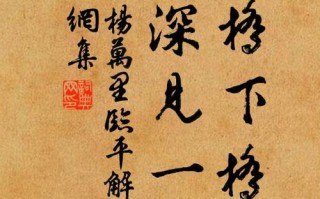 橋下橋
深見一
楊萬里臨平解
網集